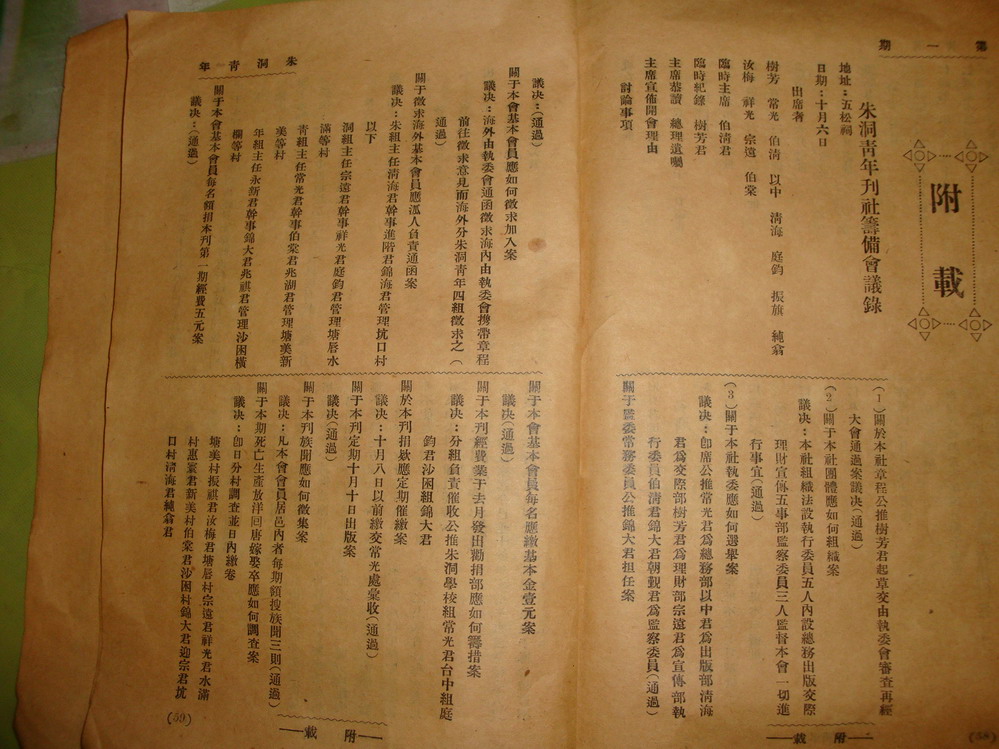 第一期
附載
朱洞青年刊社籌備會議錄
地址：五松祠
日期：十月六日
出席者
樹芳　常光　伯清　以中　清海　庭鈞　振旗　純翕
汝梅　祥光　宗遠　伯棠
臨時主席　伯清君
臨時紀錄　樹芳君
主席恭讀　總理遺囑
主席宣佈開會理由
討論事項
(1)關於本社章程公推樹芳君起草交由執委會審查再經
大會通過案議决（通過）
(2)關于本社團體應如何組織案
議决：本社組織法設執行委員五人內設總務出版交際
理財宣傳五事部監察委員三人監督本會一切進
行事宜（通過）
(3)關于本社執委應如何選舉案
議决：卽席公推常光君為總務部以中君為出版部清海
君為交際部樹芳君為理財部宗遠君為宣傳部執
行委員伯清君錦大君朝覲君為監察委員（通過）
關于監委常務委員公推錦大君担任案
附載
(58)
朱洞青年
議决：（通過）
關于本會基本會員應如何徵求加入案
議决：海外由執委會通函徵求海內由執委會携帶章程
前往徵求意見而海外分朱洞青年四組徵求之（
通過）
關于徵求海外基本會員應派人負責通函案
議决：朱組主任清海君幹事進階君錦海君管理坑口村
以下
洞組主任宗遠君幹事祥光君庭鈞君管理塘唇水
滿等村
青組主任常光君幹事伯棠君兆湖君管理塘美新
美等村
年組主任永新君幹事錦大君兆祺君管理沙困橫
欄等村
關于本會基本會員每名額捐本刊第一期經費五元案
議决：（通過）
關于本會基本會員每名應繳基本金壹元案
議决（通過）
關于本刊經費業于去月發出勸捐部應如何籌措案
議决：分組負責催收公推朱洞學校組常光君台中組庭
鈞君沙困組錦大君
關於本刊捐欵應定期催繳案
議决：十月八日以前繳交常光處彙收（通過）
關于本刊定期十月十日出版案
議决（通過）
關于本刊族聞應如何徵集案
議决：凡本會會員居邑內者每期額搜族聞三則（通過）
關于本期死亡生產放洋回唐嫁娶卒應如何調查案
議决：卽日分村調查並日內繳卷
塘美村振祺君汝梅君塘唇村宗遠君祥光君水滿
村惠棠君新美村伯棠君沙困村錦大君迎宗君坑
口村清海君純翕君
附載
(59)